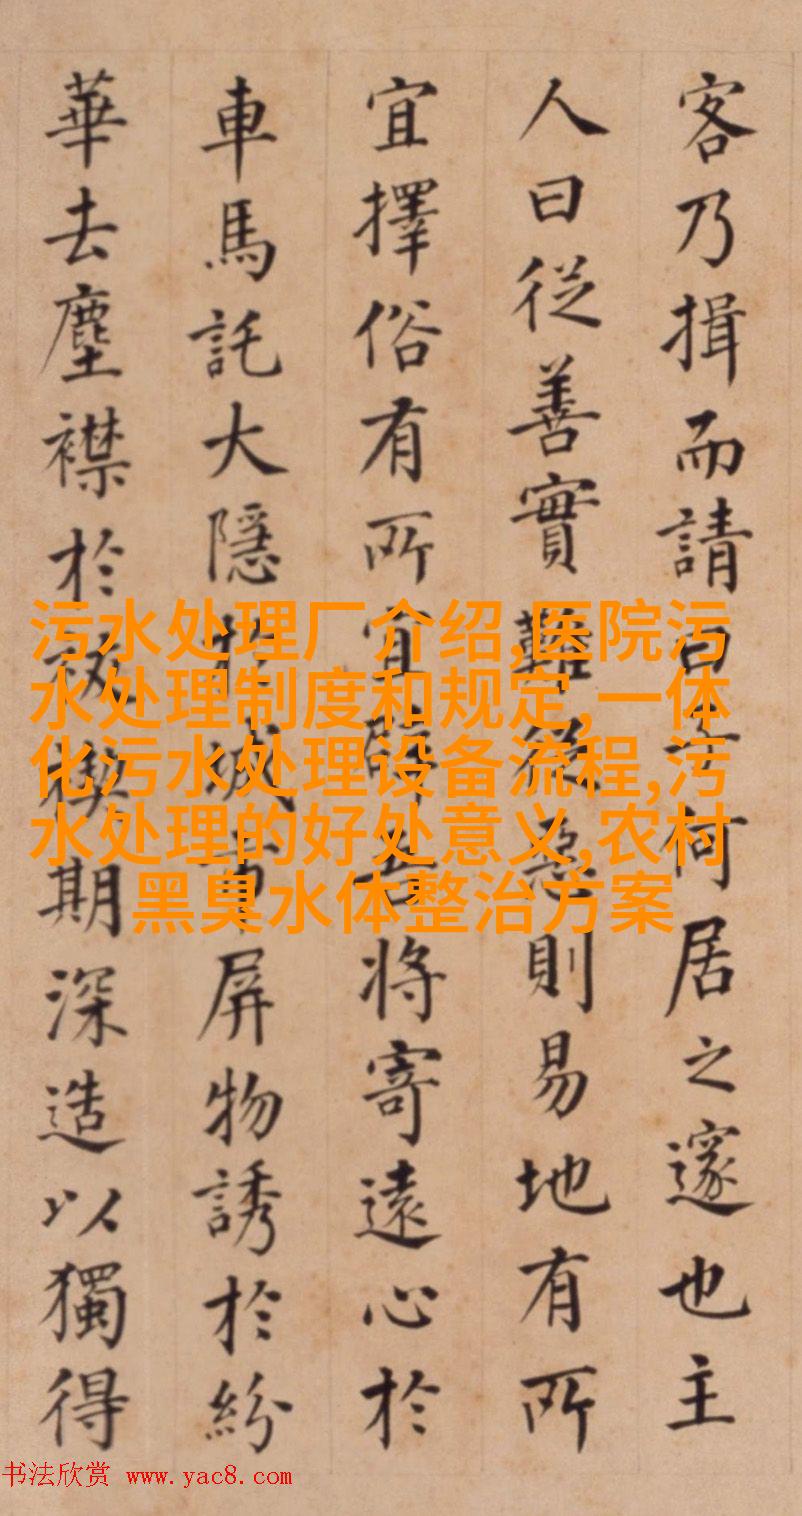 客乃揖而請曰子何居之邃也主
人曰従善實難從惡則易地有所
宜擇俗有所宜吾将寄遠心於
車馬託大隱於城市屏物誘於紛
華去塵襟於祓禊期深造以獨得
污水处理厂介绍,医院污
水处理制度和规定,一体
化污水处理设备流程,污
水处理的好处意义,农村
黑臭水体整治方案
书法欣赏 www.yac8.com